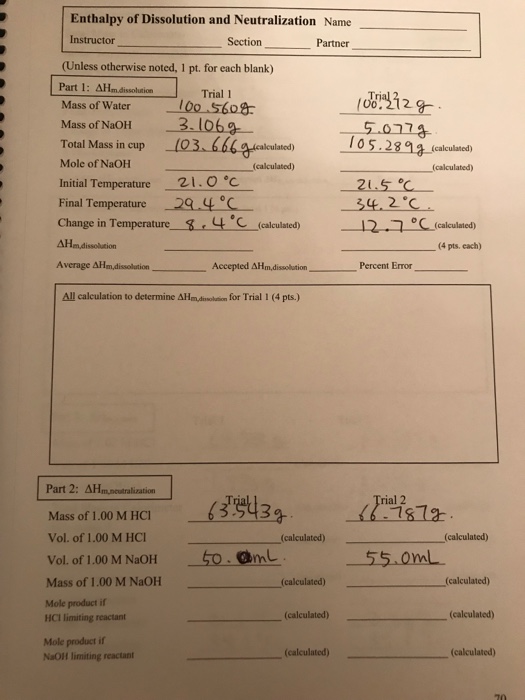 Enthalpy of Dissolution and Neutralization Name
Instructor Section Partner
(Unless otherwise noted, 1 pt. for each blank)
Part 1: ΔHm,dissolution Trial 1 Trial 2
Mass of Water 100.560g 100.212g.
Mass of NaOH 3.106g 5.077g
Total Mass in cup 103.666g (calculated) 105.289g (calculated)
Mole of NaOH (calculated) (calculated)
Initial Temperature 21.0°C 21.5°C
Final Temperature 29.4°C 34.2°C.
Change in Temperature 8.4°C (calculated) 12.7°C (calculated)
ΔHm,dissolution (4 pts. each)
Average ΔHm,dissolution Accepted ΔHm,dissolution Percent Error
All calculation to determine ΔHm,dissolution for Trial 1 (4 pts.)
Part 2: ΔHm,neutralization Trial 1 Trial 2
Mass of 1.00 M HCl 63.543g. 66.787g.
Vol. of 1.00 M HCl (calculated) (calculated)
Vol. of 1.00 M NaOH 50.0mL. 55.0mL
Mass of 1.00 M NaOH (calculated) (calculated)
Mole product if
HCl limiting reactant (calculated) (calculated)
Mole product if
NaOH limiting reactant (calculated) (calculated)